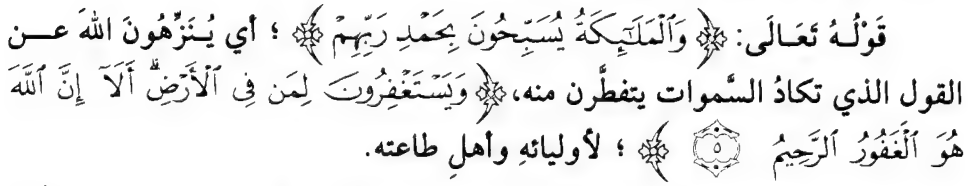 قَوْلُهُ تَعَالَى: ﴿ وَٱلْمَلَـٰٓئِكَةُ يُسَبِّحُونَ بِحَمْدِ رَبِّهِمْ ﴾ ؛ أي يُنَزِّهُونَ اللهَ عن
القول الذي تكادُ السَّموات يتفطَّرن منه، ﴿ وَيَسْتَغْفِرُونَ لِمَن فِى ٱلْأَرْضِۗ أَلَآ إِنَّ ٱللَّهَ
هُوَ ٱلْغَفُورُ ٱلرَّحِيمُ ٥ ﴾ ؛ لأوليائهِ وأهلِ طاعته.